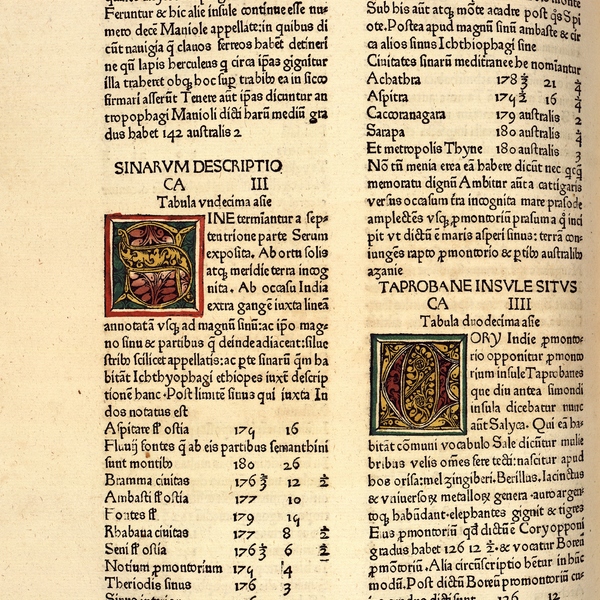 Feruntur & hic alie insule continue esse nu-
mero decē Maniole appellate: in quibus di
cūt nauigia q̄ clauos ferreos habēt detineri
ne qn̄ lapis herculeus q circa ip̄as gignitur
illa traheret obq̄ hoc sup̄ trabib⁹ ea in sicco
firmari asserūt Tenere aūt ip̄as dicuntur an
tropophagi Manioli dicti harū mediū gra
dus habet 142 australis 2
SINARVM DESCRIPTIO
CA III
Tabula vndecima asie
SINE termīantur a sep-
tentrione parte Serum
exposita. Ab ortu solis
atq̄ meridie terra incog
nita. Ab occasu India
extra gangē iuxta lineā
annotatā vsq̄ ad magnū sinū: ac ip̄o mag-
no sinu & partibus q̄ deinde adiacent: silue
strib⁹ scilicet appellatis: ac p̄te sinarū q̄m ha
bitāt Ichthyophagi ethiopes iuxt̄ descrip
tionē hanc. Post limitē sinus qui iuxta In
dos notatus est
Aspitare fl̄ ostia 179 16
Fluuij fontes q̄ ab eis partibus semanthini
sunt montib⁹ 180 26
Bramma ciuitas 176 ⅔ 12 ½
Ambasti fl̄ ostia 177 10
Fontes fl̄ 179 19
Rhabana ciuitas 177 8 ½
Seni fl̄ ostia 176 ⅔ 6 ½
Notium p̄montoriū 179 4
Theriodis sinus 176 3
Sub his aūt atq̄ mōte acadre post q̄s Spi
ote. Postea apud magnū sinū ambaste & cir
ca alios sinus Ichthiophagi sine
Ciuitates sinarū meditranee he nomīantur
Achathra 178 ⅔ 21 ¼
Aspitra 179 ½ 16 ¼
Caccoranagara 179 australis 2
Sarapa 180 australis 4
Et metropolis Thyne 180 australis 3
Nō tn̄ menia erea eā habere dicūt nec q̄cq̄
memoratu dignū Ambitur aūt a cattigaris
versus occasum ēra incognita mare praso de
amplectēs vsq̄ p̄montoriū prasum a q̄ inci
pit vt dictū ē maris asperi sinus: terrā con-
iungēs rapto p̄montorio & p̄tib⁹ australib⁹
azanie
TAPROBANE INSVLE SITVS
CA IIII
Tabula duodecima asie
CORY Indie p̄monto-
rio opponitur p̄monto
rium insule Taprobanes
que diu antea simondi
insula dicebatur nunc
aūt Salyca. Qui eā ha-
bitāt cōmuni vocabulo Sale dicūtur mulie
bribus velis om̄es sere tecti: nascitur apud
hos oriza: mel zingiberi. Berillus. Iacinctus
& vniuersoꝝ metalloꝝ genera. auro argen-
toq̄ habūdant. elephantes gignit & tigres
Eius p̄montoriū qd̄ dictū ē Cory opponi
gradus habet 126 12 ½. & vocatur Boreū
p̄mōtoriū. Alia circūscriptio hētur in hūc
modū. Post dictū Boreū promontoriū